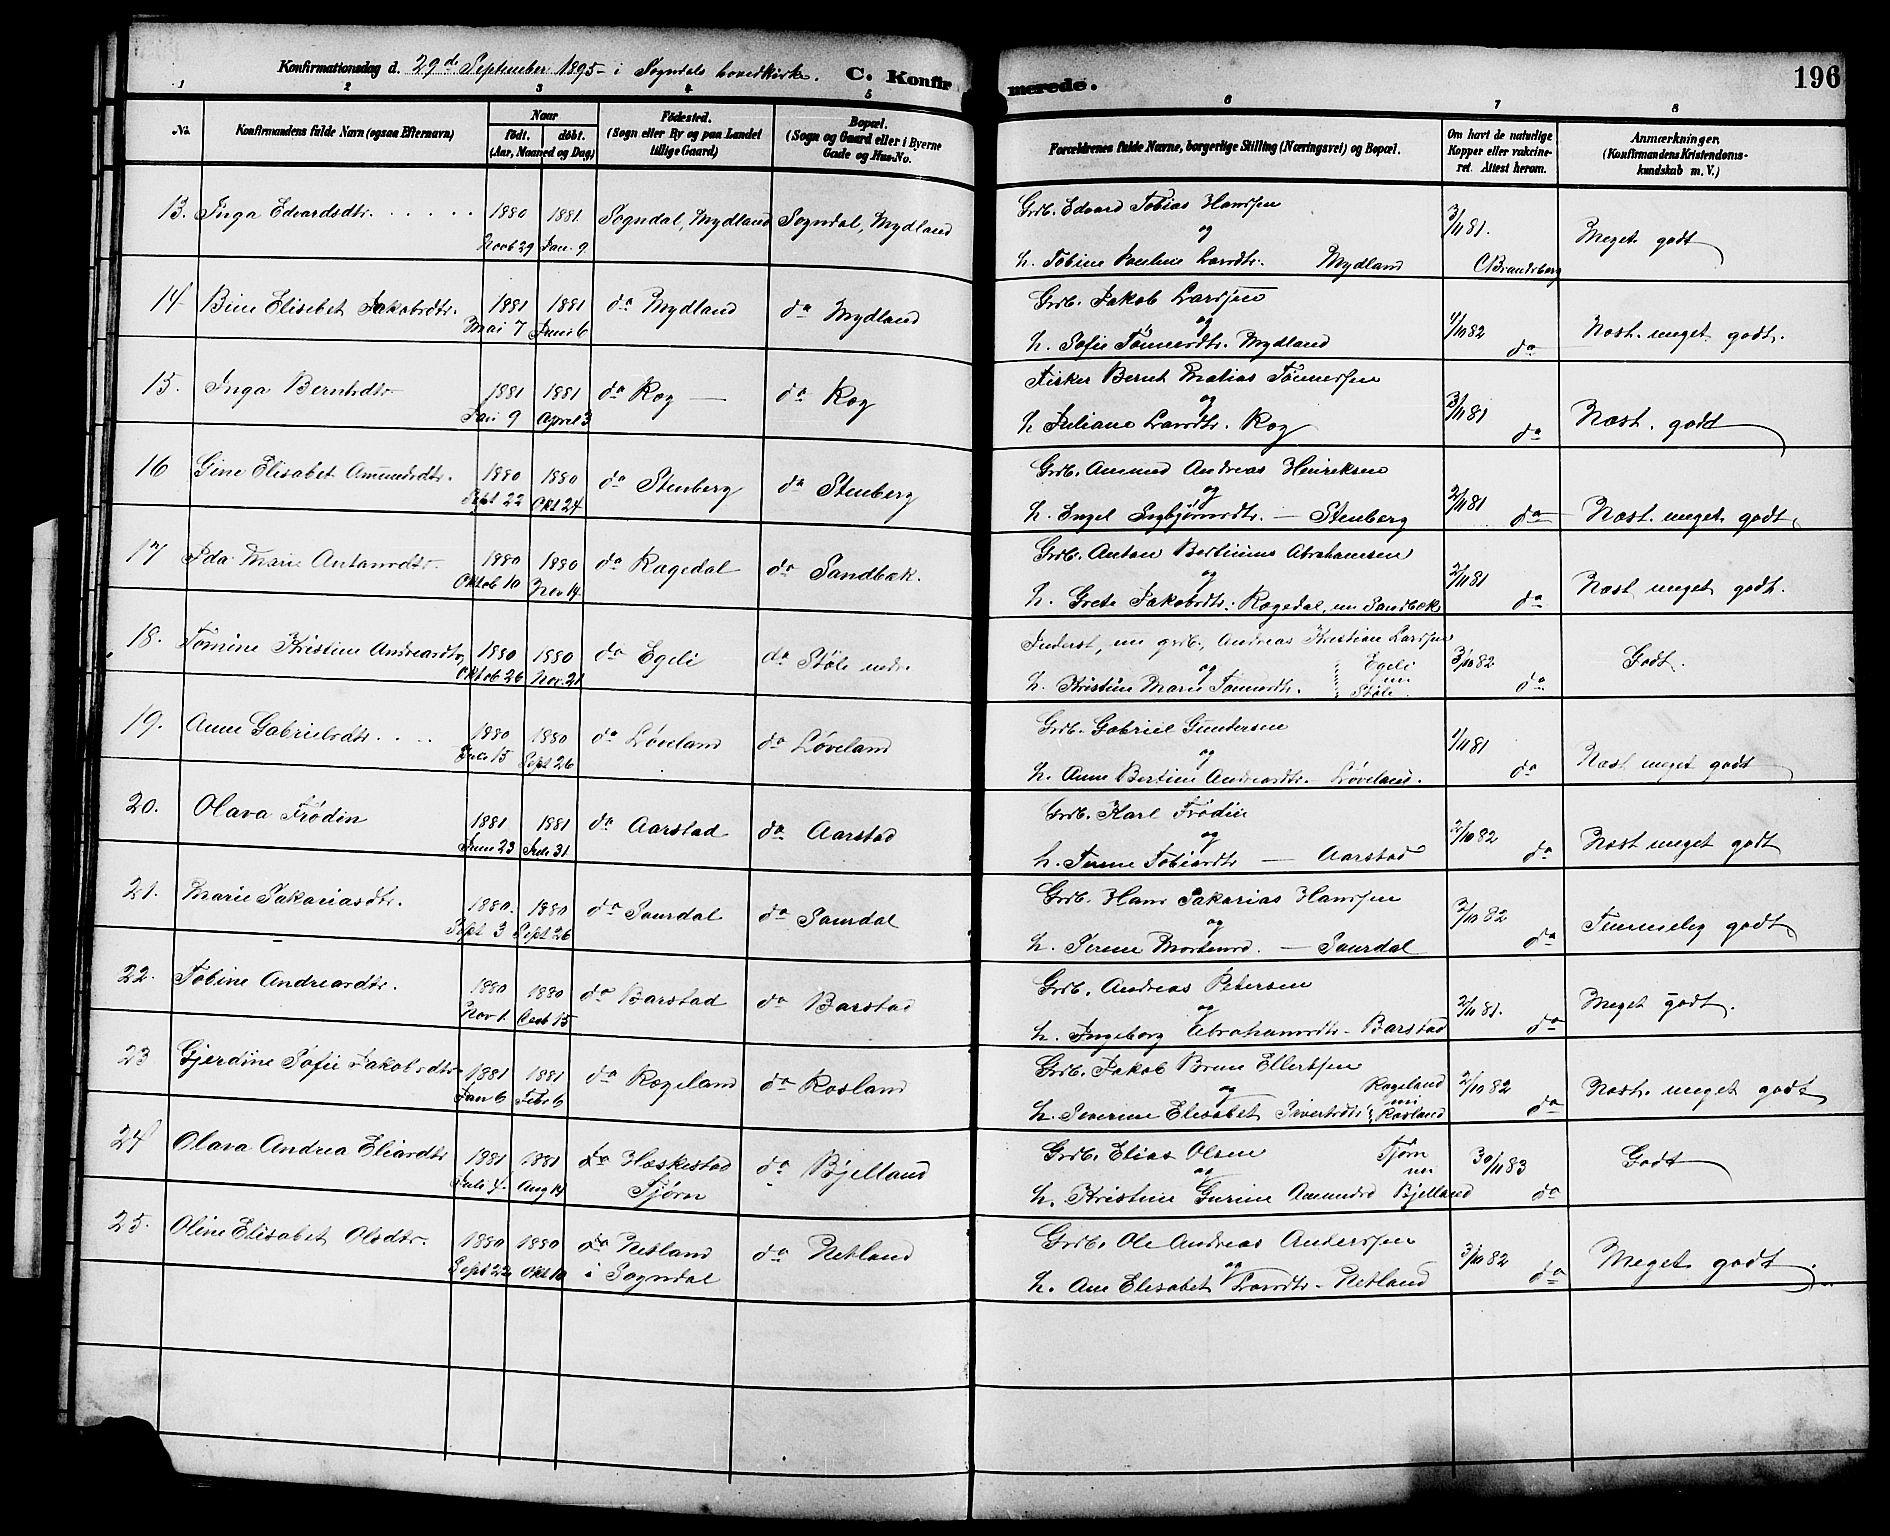 Konfirmationsdag d. 29de September 1895 i Sogndals hovedkirke. C. Konfirmerede. 196
1 2 3 4 5 6 7 8
No. Konfirmandens fulde Navn (ogsaa Efternavn) Naar födt. döbt. (Aar, Maaned og Dag) Födested. (Sogn eller By og paa Landet tillige Gaard) Bopæl. (Sogn og Gaard eller i Byerne Gade og Hus-No. Forældrenes fulde Navne, borgerlige Stilling (Næringsvei) og Bopæl. Om havt de naturlige Kopper eller vakcineret. Attest herom. Anmærkninger. (Konfirmandens Kristendomskundskab m. V.)
13. Inga Edvardsdtr. . . . . . 1880 1881 Sogndal, Mydland Sogndal, Mydland Grdb. Edvard Tobias Hansen 3/11 81. Meget godt
Novb 29 Jan. 9 og
h. Tobine Pauline Larsdtr. Mydland C Brandsberg
14 Bine Elisebet Jakobsdtr. 1881 1881 do Mydland do Mydland Grdb. Jakob Larssen 4/10 82 Næst. meget godt.
Mai 7 Juni 6 og
h. Sofie Tönnesdtr. Mydland do
15. Inga Berntsdtr. 1881 1881 do Rog — do Rog Fisker Bernt Matias Tönnessen 3/11 81 Næst. godt
Jan 9 April 3 og
h Juliane Larsdtr. Rog do
16 Gine Elisabet Amundsdtr. 1880 1880 do Stenberg do Stenberg Grdb. Amund Andreas Henriksen 2/11 81 Næst. meget godt
Sept 22 Okt 24 og
h. Engel Ingbjørnsdtr. — Stenberg do
17 Ida Marie Antonsdtr 1880 1880 do Ragedal do Sandbæk. Grdb. Anton Bertinius Abrahamsen 2/11 81 Næst meget godt.
Oktob 10 Nov 14 og
h. Grete Jakobsdtr. Ragedal, nu Sandbæk do
18. Tomine Kristine Andreasdtr, 1880 1880 do Egeli do Støle nedr. Inderst, nu grdb. Andreas Kristian Larssen 3/10 82 Godt.
Oktob 26 Nov. 21 og Egeli
h. Kristine Marie Tönnesdtr. nu Støle. do
19. Anne Gabrielsdtr. . . . 1880 1880 do Løveland do Løveland Grdb. Gabriel Gundersen 1/11 81 Næst meget godt
Juli 15 Sept 26 og
h. Anne Bertine Andreasdtr. Løveland. do
20. Olava Frödin 1881 1881 do Aarstad do Aarstad Grdb. Karl Frödin 2/10 82 Næst meget godt
Juni 23 Juli 31 og
h. Serine Tobiasdtr — Aarstad do
21. Marie Sakariasdtr. 1880. 1880 do Saurdal do Saurdal Grdb. Hans Sakarias Hanssen 2/10 82 Temmelig godt
Sept 3 Sept 26 og
h. Serine Mortensd. — Saurdal do
22. Tobine Andreasdtr. 1880 1880 do Barstad do Barstad Grdb. Andreas Petersen 2/11 81. Meget godt.
Nov 1. Decb 15 og
h. Ingeborg Abrahamsdtr. Barstad do
23 Gjerdine Sofie Jakobsdtr 1881 1881 do Rogeland do Rosland Grdb. Jakob Brun Ellertsen 2/10 82 Næst. meget godt
Jan 6 Febr 6 og Rogeland nu
h. Severine Elisabet Sivertsdtr. Rosland do
24 Olava Andrea Eliasdtr 1881 1881 do Heskestad do Bjelland Grdb. Elias Olsen Tjørn 30/11 83 Godt
Juli 4. Aug 14 Tjørn og nu
h. Kristine Gurine Amundsd Bjelland do
25. Oline Elisabet Olsdtr. 1880 1880 do Netland do Netland Grdb. Ole Andreas Anderssen 3/10 82 Meget godt.
Sept 22 Okt 10 i Sogndal og
h. Ane Elisabet Larsdtr. Netland do